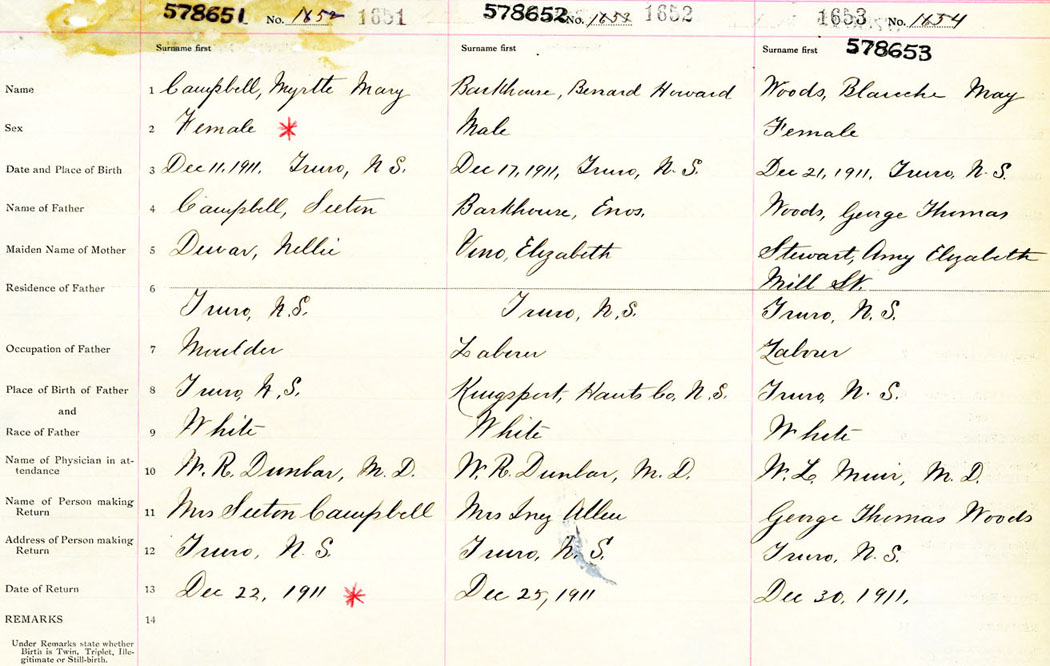 578651 No. 1652 1651 578652 No. 1653 1652 1653 No. 1654
Surname first Surname first Surname first 578653
Name 1 Campbell, Myrtle Mary Barkhouse, Benard Howard Woods, Blanche May
Sex 2 Female * Male Female
Date and Place of Birth 3 Dec 11, 1911. Truro, N.S. Dec 17, 1911, Truro, N.S. Dec 21, 1911, Truro, N.S.
Name of Father 4 Campbell, Seeton Barkhouse, Enos. Woods, George Thomas
Maiden Name of Mother 5 Dewar, Nellie Vino, Elizabeth Stewart, Amy Elizabeth
Residence of Father 6 Mill St.
Truro, N.S. Truro, N.S. Truro, N.S.
Occupation of Father 7 Moulder Laborer Laborer
Place of Birth of Father 8 Truro, N.S. Kingsport, Hants Co, N.S. Truro, N.S.
and
Race of Father 9 White White White
Name of Physician in at-
tendance 10 W. R. Dunbar, M.D. W. R. Dunbar, M.D. W. L. Muir, M.D.
Name of Person making
Return 11 Mrs Seeton Campbell Mrs Inez Allen George Thomas Woods
Address of Person making
Return 12 Truro, N.S. Truro, N.S. Truro, N.S.
Date of Return 13 Dec 22, 1911 * Dec 25, 1911 Dec 30, 1911.
REMARKS 14
Under Remarks state whether
Birth is Twin, Triplet, Ille-
gitimate or Still-birth.